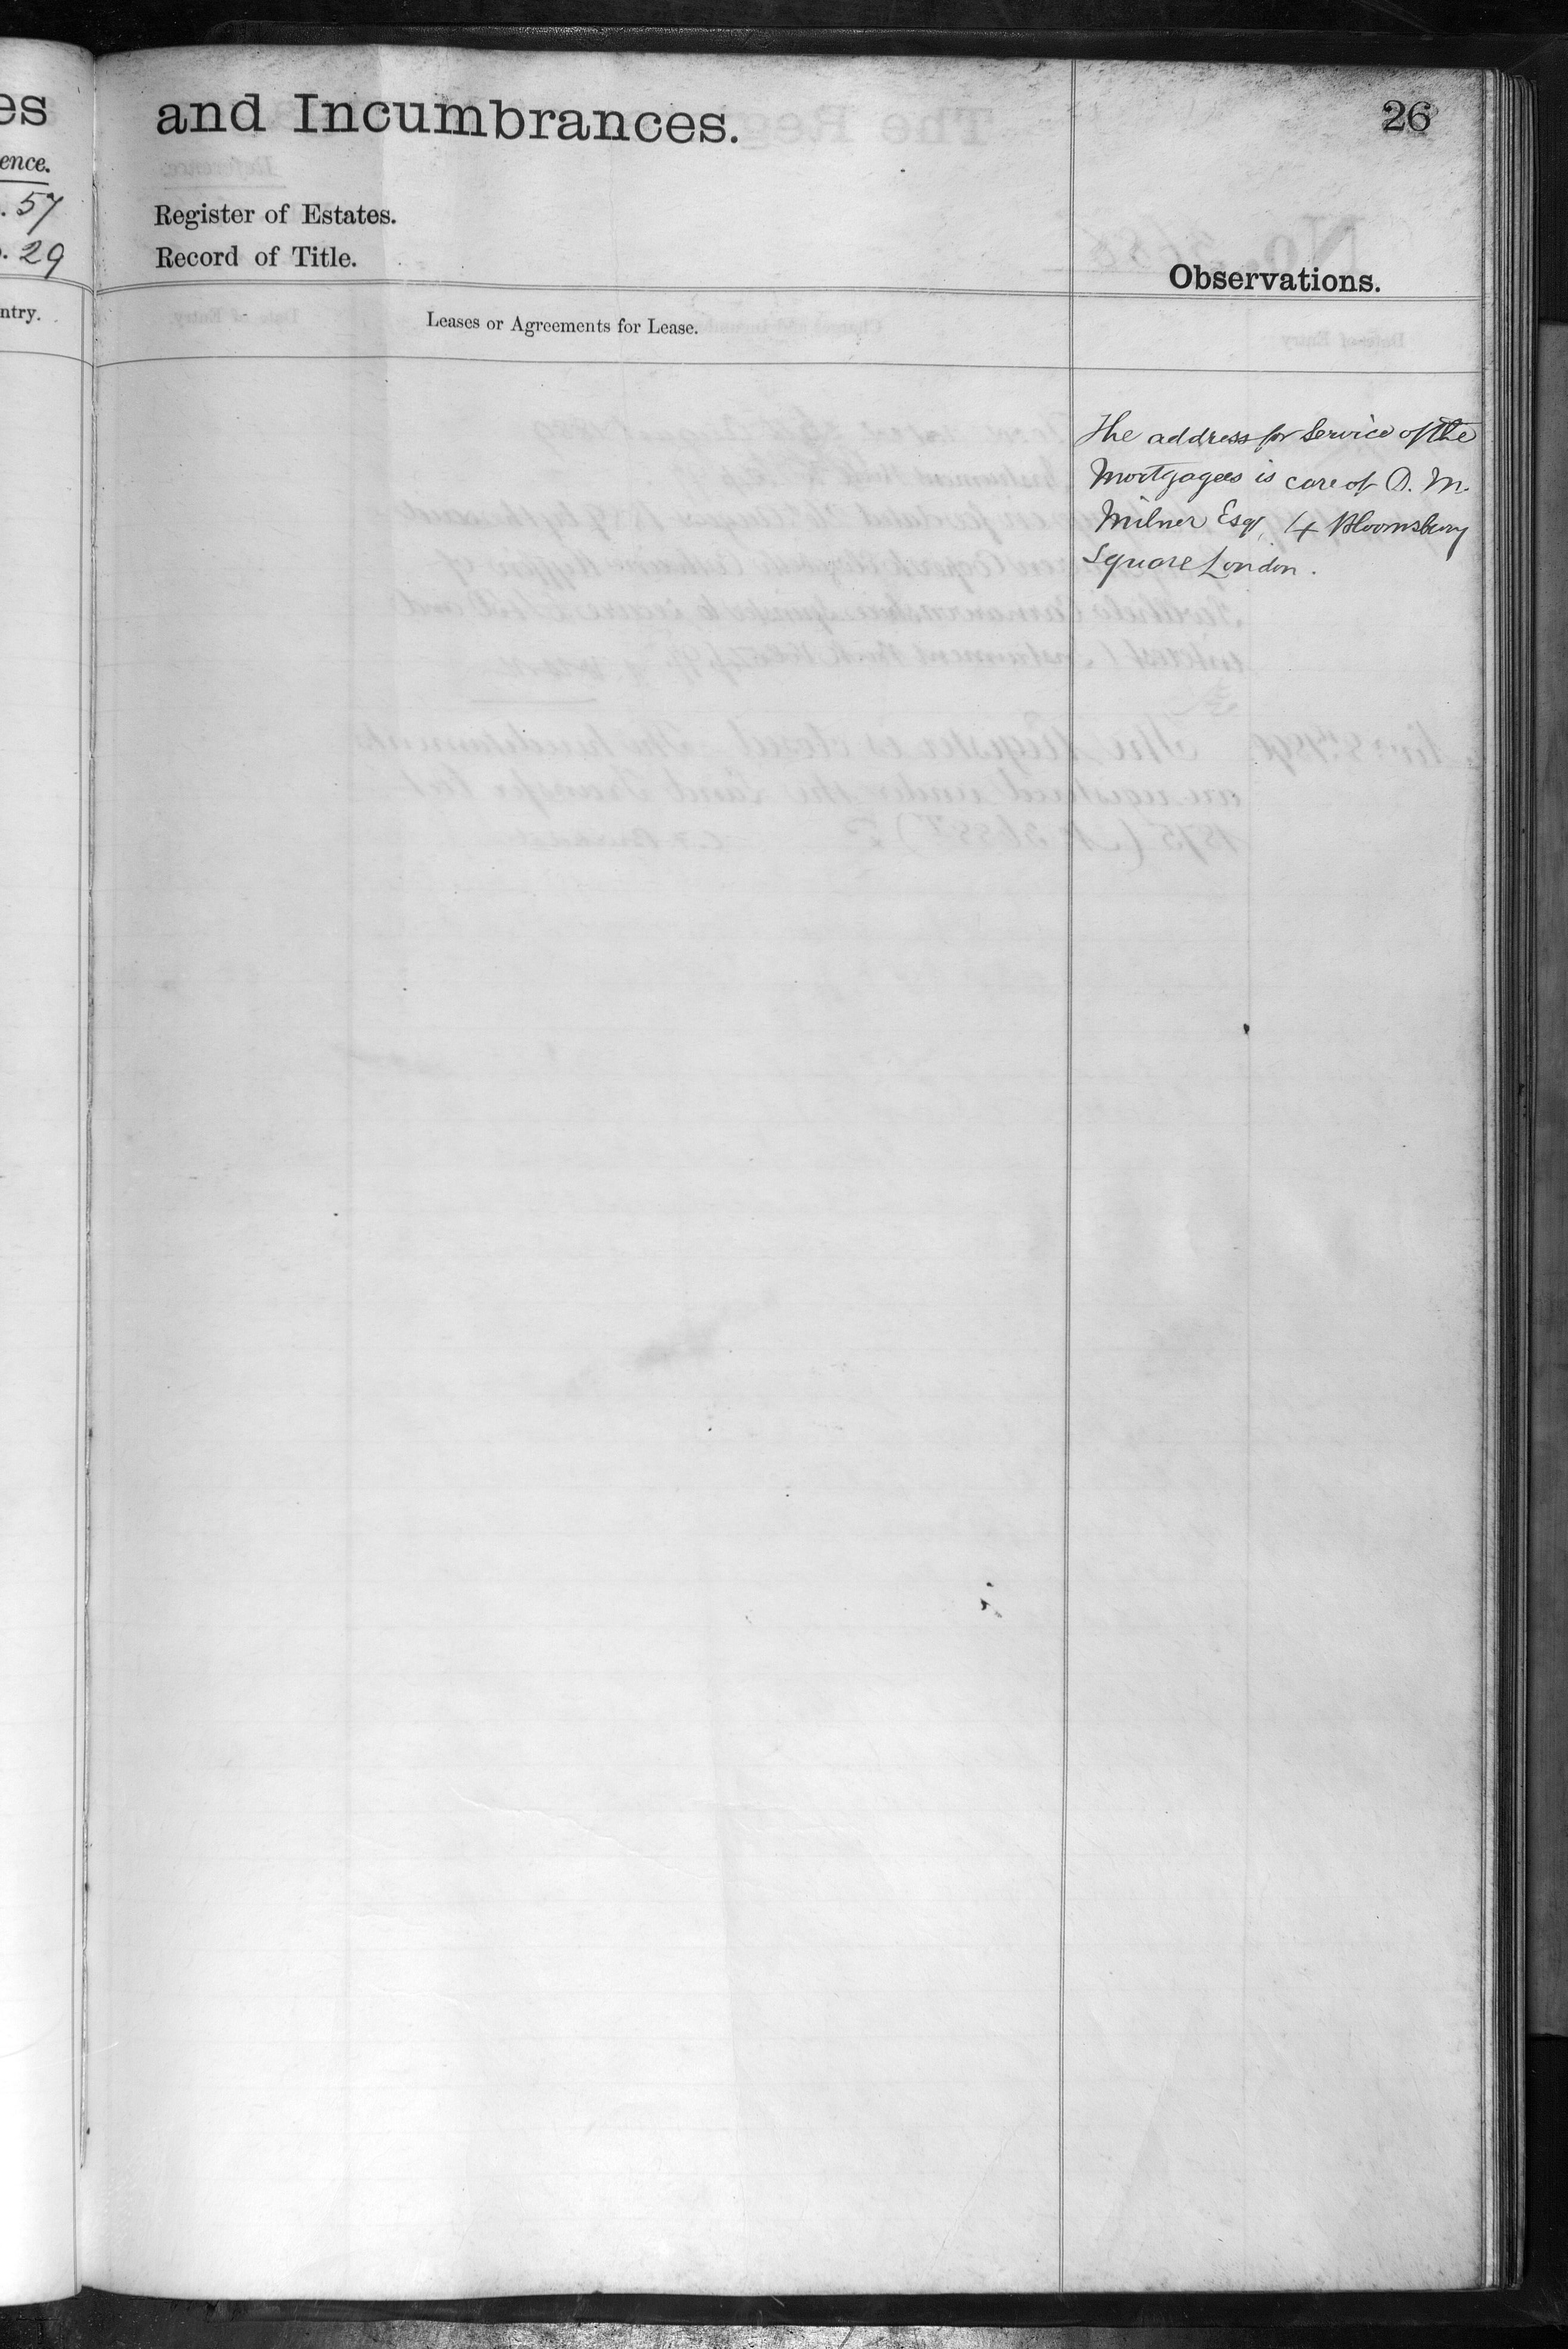 es
ence.
. 57
. 29
ntry.
and Incumbrances.
26
Register of Estates.
Record of Title.
Observations.
Leases or Agreements for Lease.
The address for Service of the
Mortgagees is care of D. M.
Milner Esq, 4 Bloomsbury
Square London.